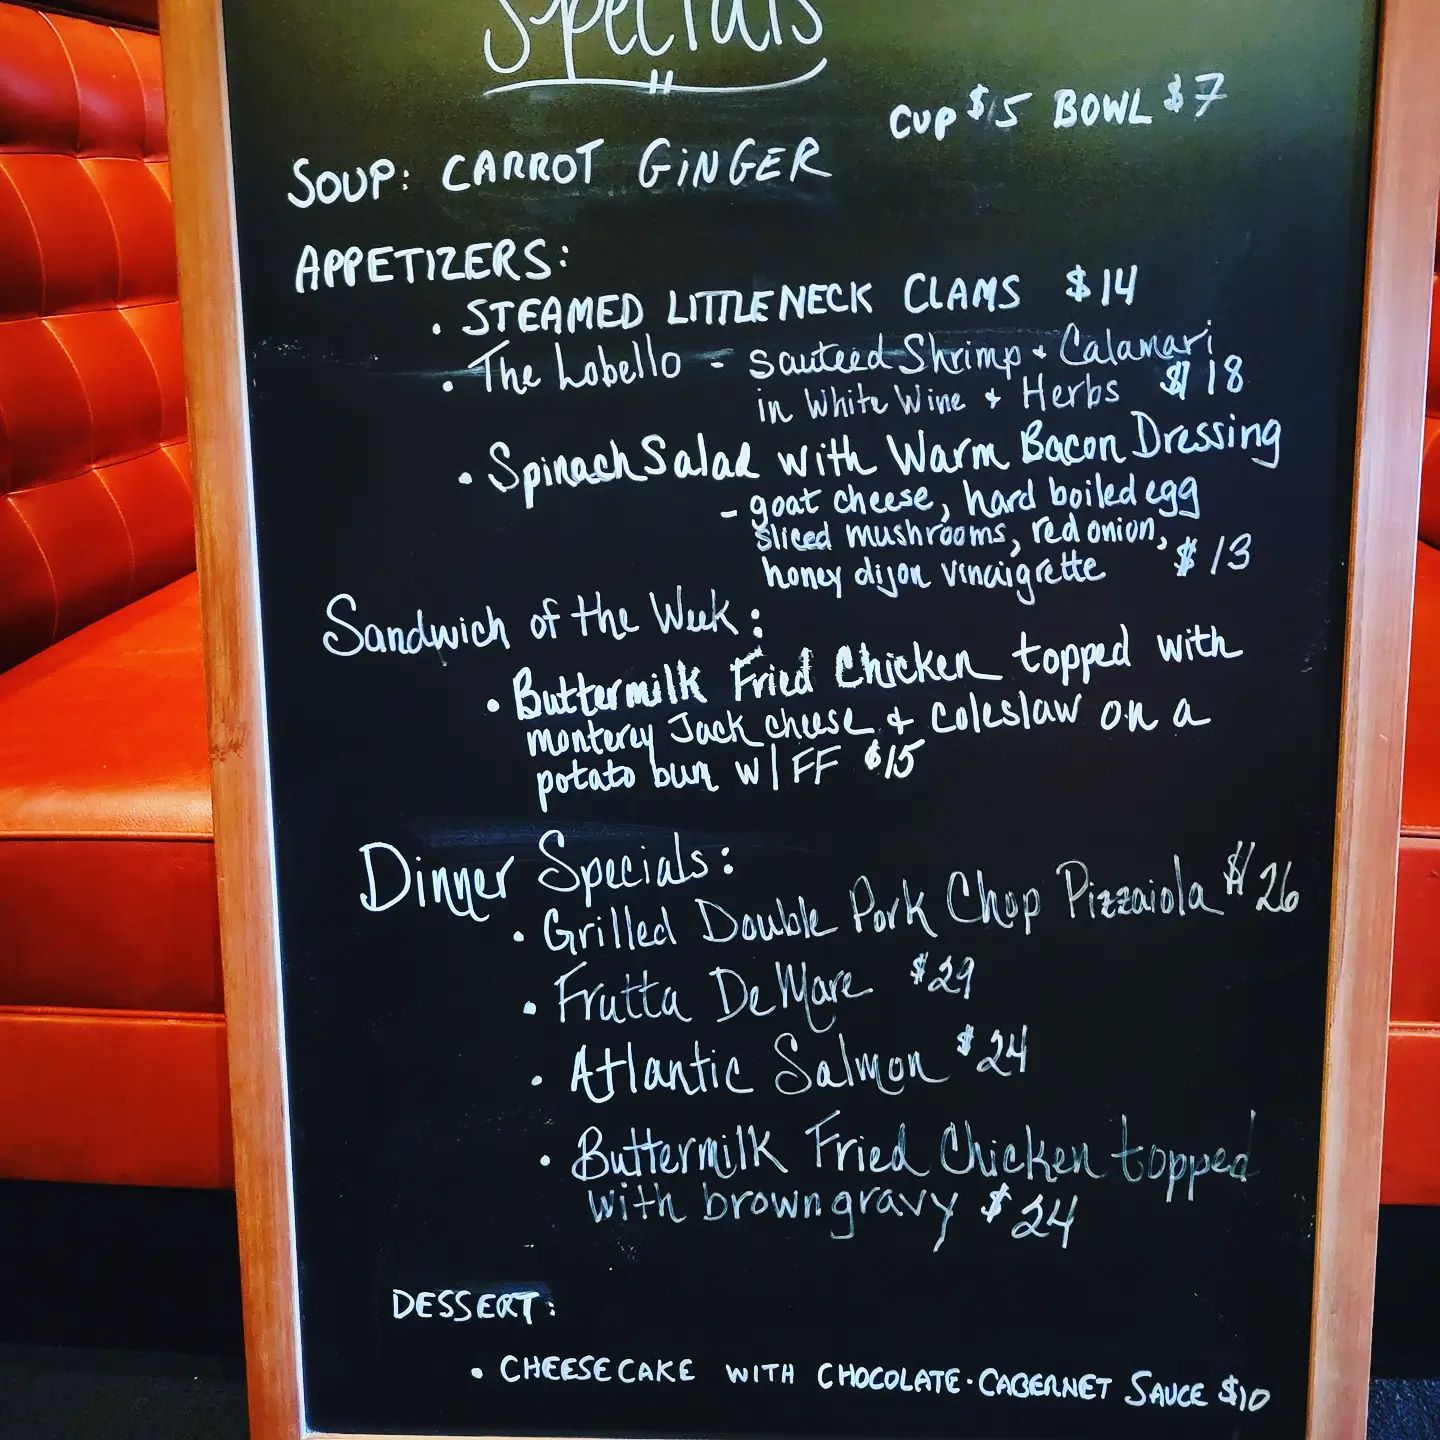 Specials
CUP $5 BOWL $7
SOUP: CARROT GINGER
APPETIZERS:
• STEAMED LITTLENECK CLAMS $14
• The Lobello - sauteed Shrimp + Calamari
in White Wine + Herbs $18
• Spinach Salad with Warm Bacon Dressing
- goat cheese, hard boiled egg
sliced mushrooms, red onion,
honey dijon vinaigrette $13
Sandwich of the Week:
• Buttermilk Fried Chicken topped with
monterey Jack cheese + coleslaw on a
potato bun w/ FF $15
Dinner Specials:
• Grilled Double Pork Chop Pizzaiola $26
• Frutta De Mare $29
• Atlantic Salmon $24
• Buttermilk Fried Chicken topped
with brown gravy $24
DESSERT:
• CHEESECAKE WITH CHOCOLATE-CABERNET SAUCE $10